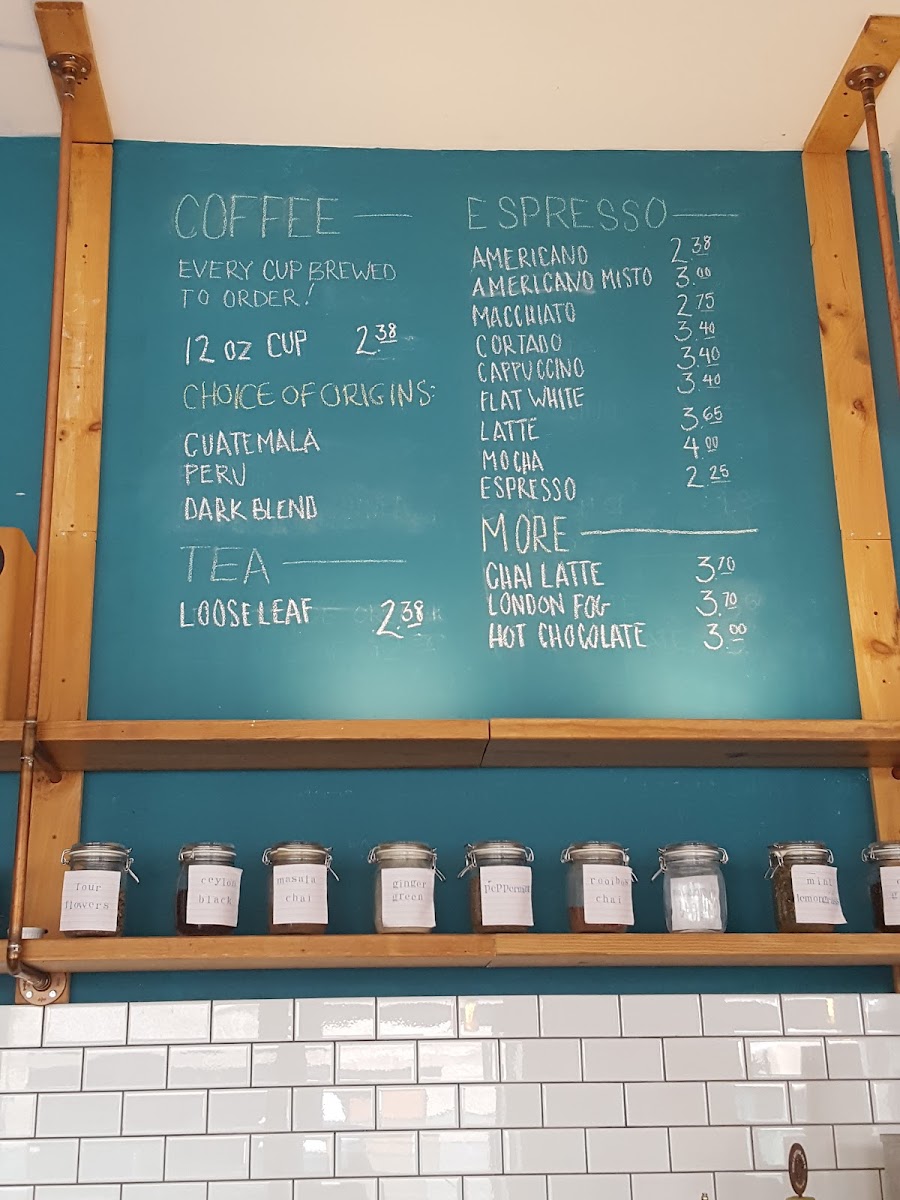 COFFEE
EVERY CUP BREWED
TO ORDER!
12 OZ CUP 2.38
CHOICE OF ORIGINS:
GUATEMALA
PERU
DARK BLEND
TEA
LOOSE LEAF 2.38
ESPRESSO
AMERICANO 2.38
AMERICANO MISTO 3.00
MACCHIATO 2.75
CORTADO 3.40
CAPPUCCINO 3.40
FLAT WHITE 3.40
LATTE 3.65
MOCHA 4.00
ESPRESSO 2.25
MORE
CHAI LATTE 3.70
LONDON FOG 3.70
HOT CHOCOLATE 3.00
four
flowers
ceylon
black
masala
chai
ginger
green
peppermint
rooibos
chai
mint
lemongrass